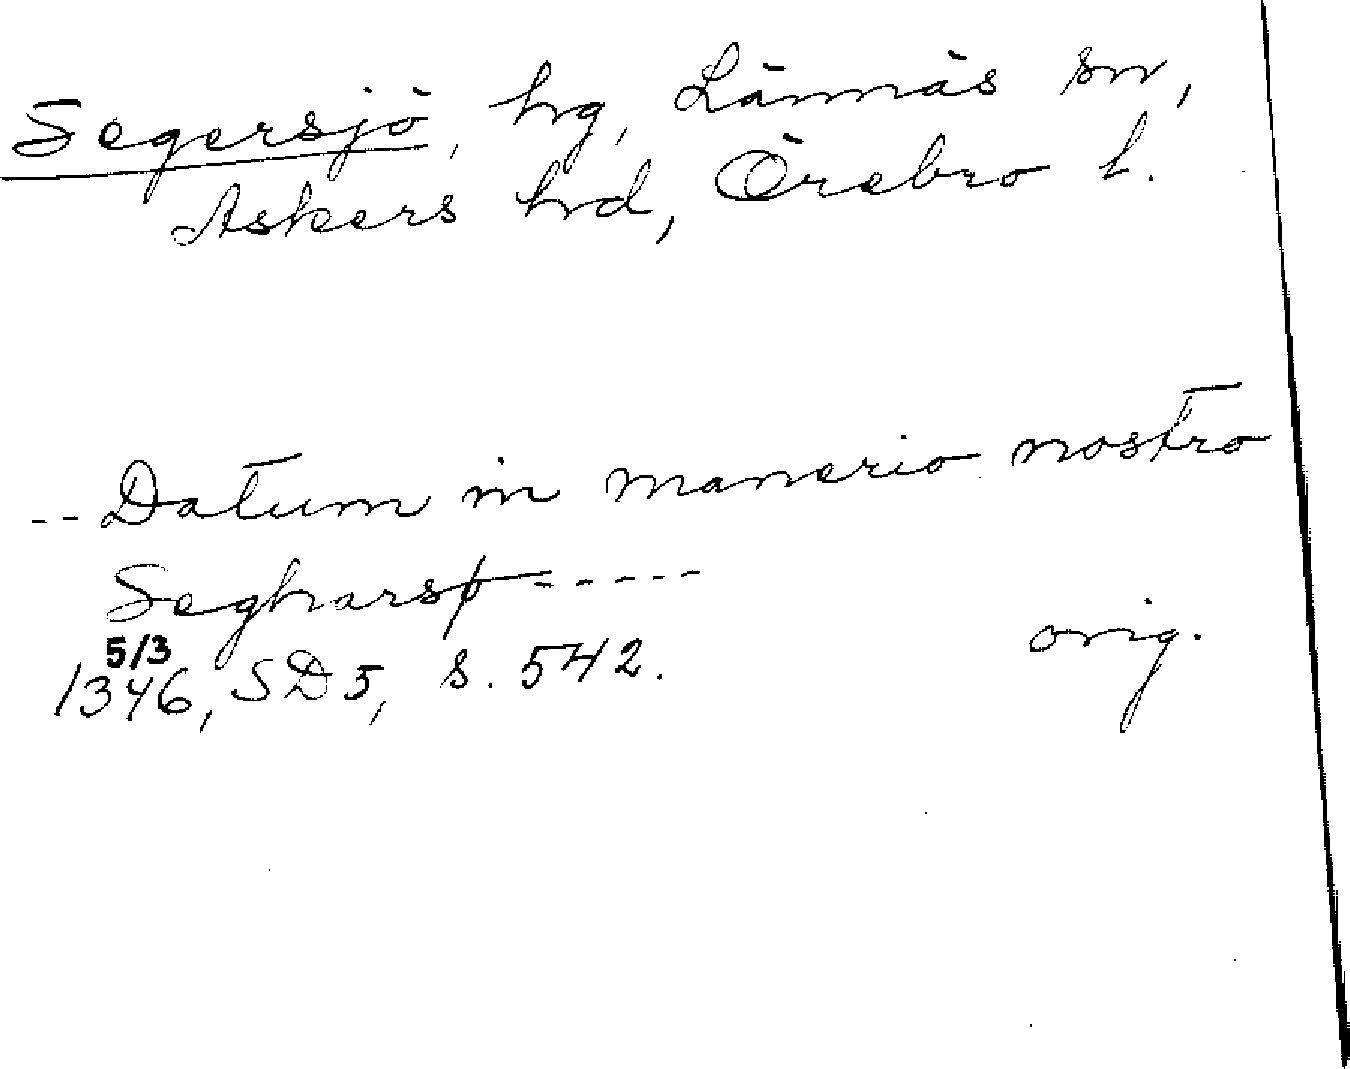 Segersjö, hg, Lännäs sn,
Askers hd, Örebro l.
-- Datum in manerio nostro
Segharsø - - - - -
5/3
1346, SD5, s. 542. orig.